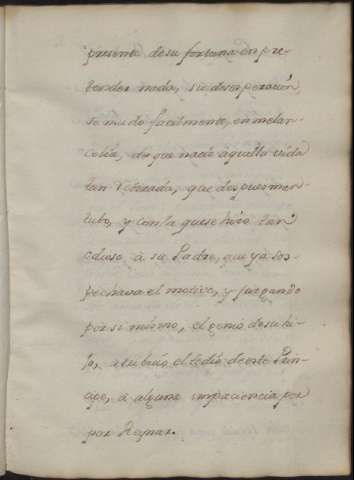 presente de su fortuna en pre-
tender nada, su desesperación,
se mudó facilmente, en melan-
colia, de que nació aquella vida
tan retirada, que despues man-
tubo, y con la que se hizo tan
odioso à su Padre, que ya sos-
pechava el motivo, y juzgando
por si mismo, el genio de su hi-
jo, atribuió el tedio de este Prin-
cipe, à alguna impaciencia por
por Reynar.